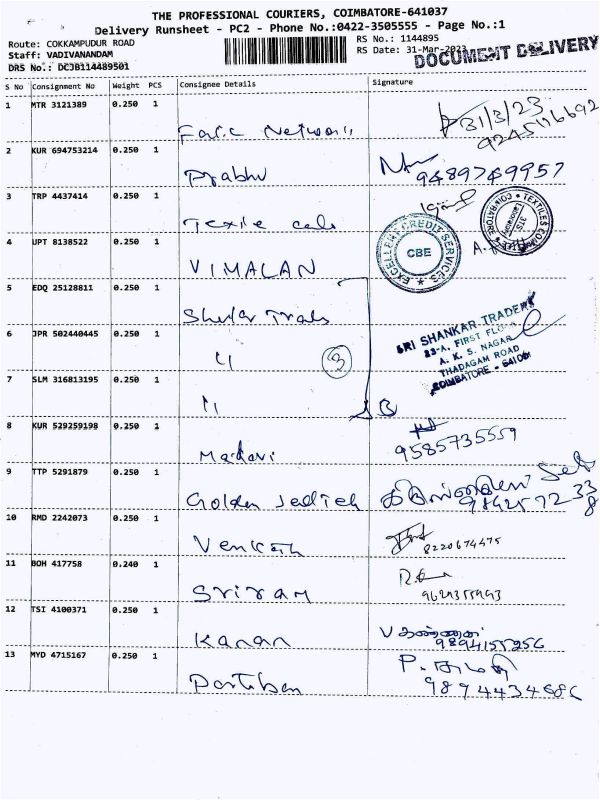 THE PROFESSIONAL COURIERS, COIMBATORE-641037
Delivery Runsheet - PC2 - Phone No.:0422-3505555 - Page No.:1
Route: COKKAMPUDUR ROAD
RS No.: 1144895
Staff: VADIVANANDAM
RS Date: 31-Mar-2023
DRS No.: DCJB114489501
DOCUMENT DELIVERY
S No Consignment No Weight PCS Consignee Details Signature
1 MTR 3121389 0.250 1
31/3/23
9245116692
2 KUR 694753214 0.250 1
Prabhu 9489769957
3 TRP 4437414 0.250 1
Texile
TEXTILES COIMBATORE
EXCELLENT CREDIT SERVICES
CBE
4 UPT 8138522 0.250 1
VIMALAN
5 EDQ 25128811 0.250 1
6 JPR 502440445 0.250 1
〃 3
SRI SHANKAR TRADERS
23-A, FIRST FLOOR
A. K. S. NAGAR
THADAGAM ROAD
COIMBATORE - 641001
7 SLM 316813195 0.250 1
〃
8 KUR 529259198 0.250 1
Madavi 9585735559
9 TTP 5291879 0.250 1
Golden
10 RMD 2242073 0.250 1
Venkath 8220674475
11 BOH 417758 0.240 1
Sriram
12 TSI 4100371 0.250 1
Kanan
13 MYD 4715167 0.250 1
Partiban